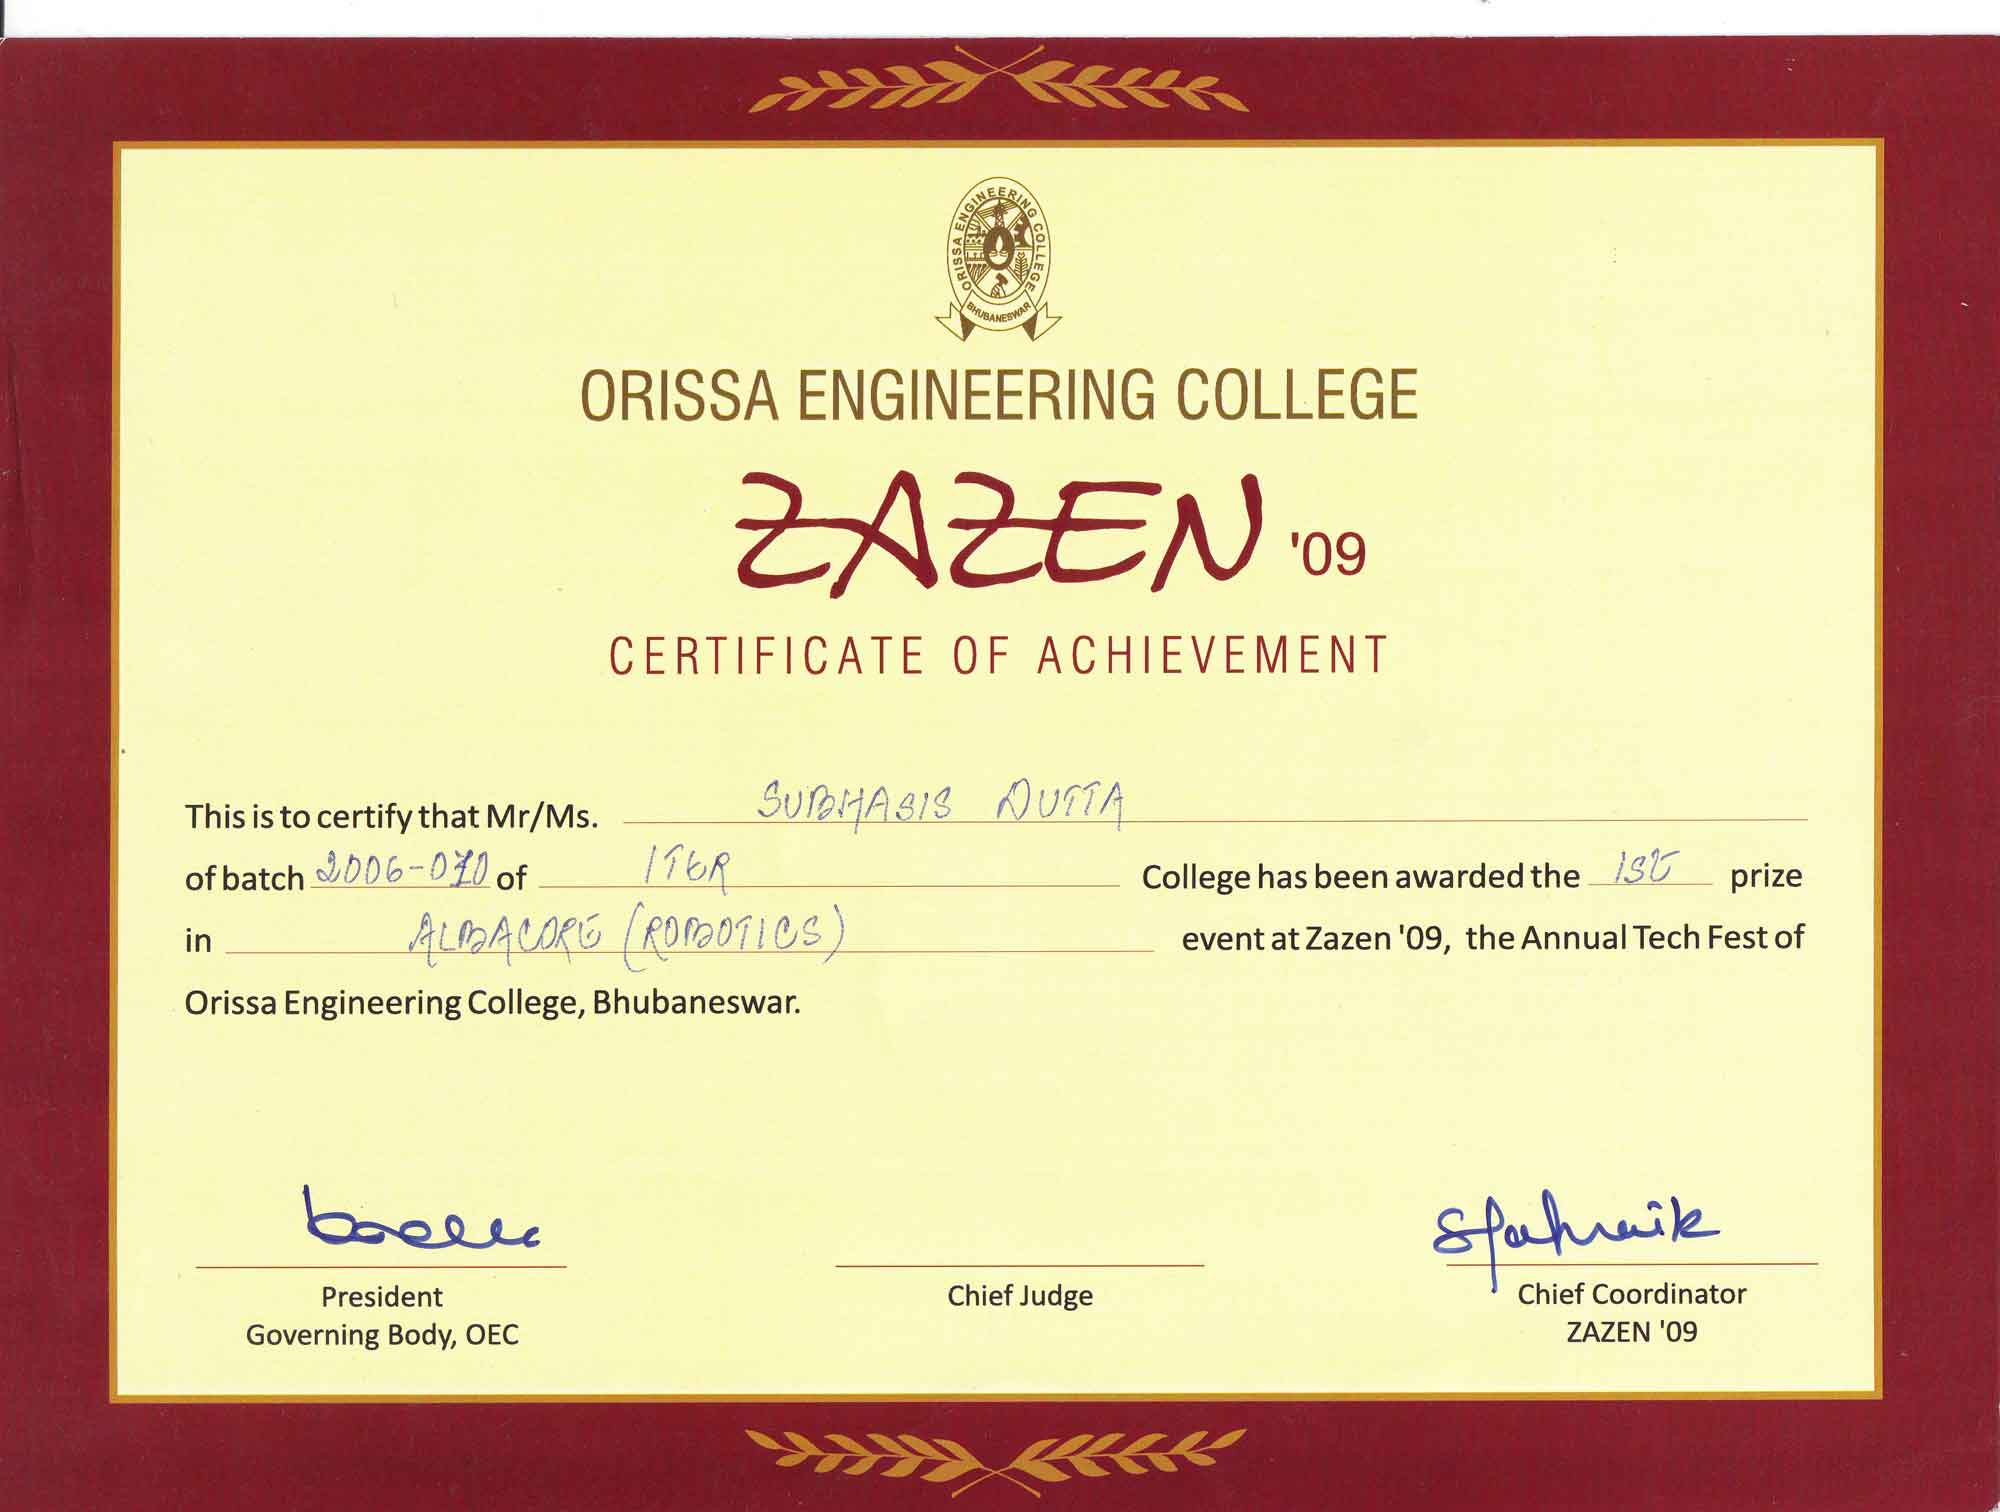 ORISSA ENGINEERING COLLEGE
BHUBANESWAR
ORISSA ENGINEERING COLLEGE
ZAZEN '09
CERTIFICATE OF ACHIEVEMENT
This is to certify that Mr/Ms. SUBHASIS DUTTA
of batch 2006-010 of ITER College has been awarded the 1st prize
in ALBACORE (ROBOTICS) event at Zazen '09, the Annual Tech Fest of
Orissa Engineering College, Bhubaneswar.
President Chief Judge Chief Coordinator
Governing Body, OEC ZAZEN '09